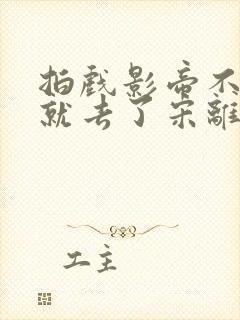 拍戲影帝不
就去了宋離
工主